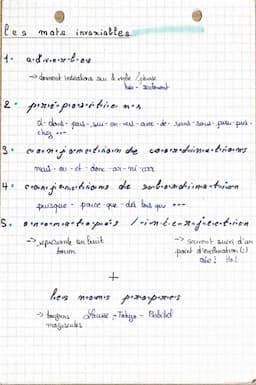 les mots invariables
1. adverbes
→ donnent indications sur le verbe / phrase
bien - seulement
2. prépositions
à - dans - par - sur - en - vers - avec - de - sans - sous - pour - puis -
chez ...
3. conjonctions de coordinations
mais - ou - et - donc - or - ni - car
4. conjonctions de subordination
puisque - parce que - dès lors que ...
5. onomatopés / interjection
→ représente un bruit → souvent suivi d'un
boum point d'exclamation (!)
aïe ! Ho !
+
les noms propres
→ toujours - Tokyo -
majuscules